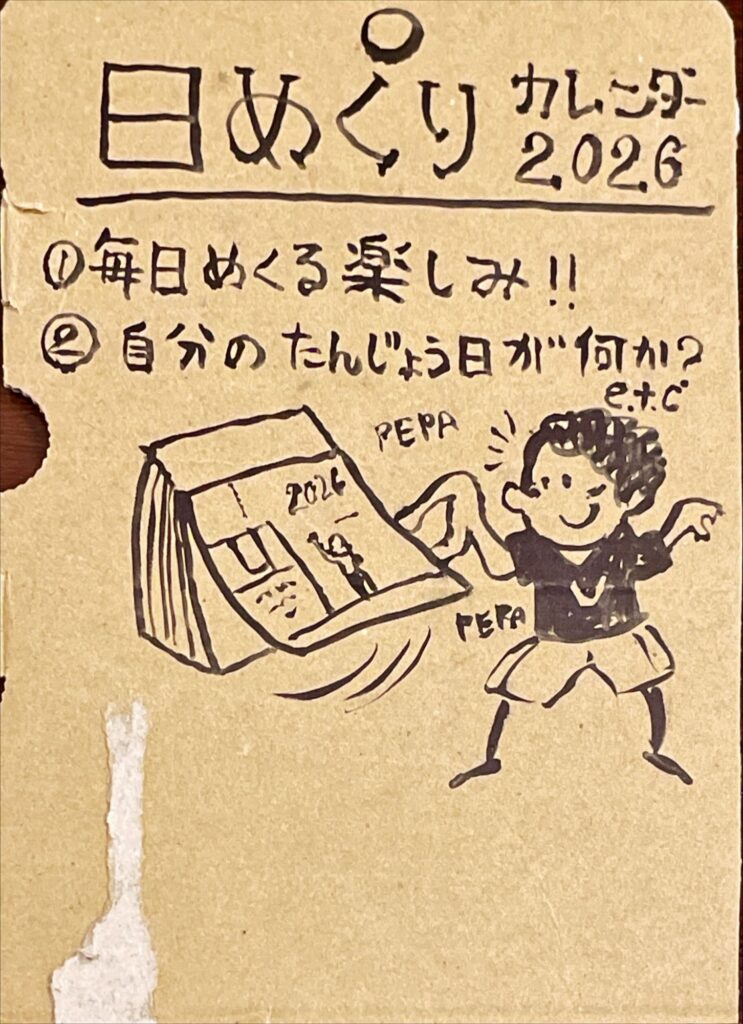 日めくり カレンダー 2026
① 毎日めくる楽しみ!!
② 自分のたんじょう日が何か?
e.t.c
PEPA
2026
PEPA